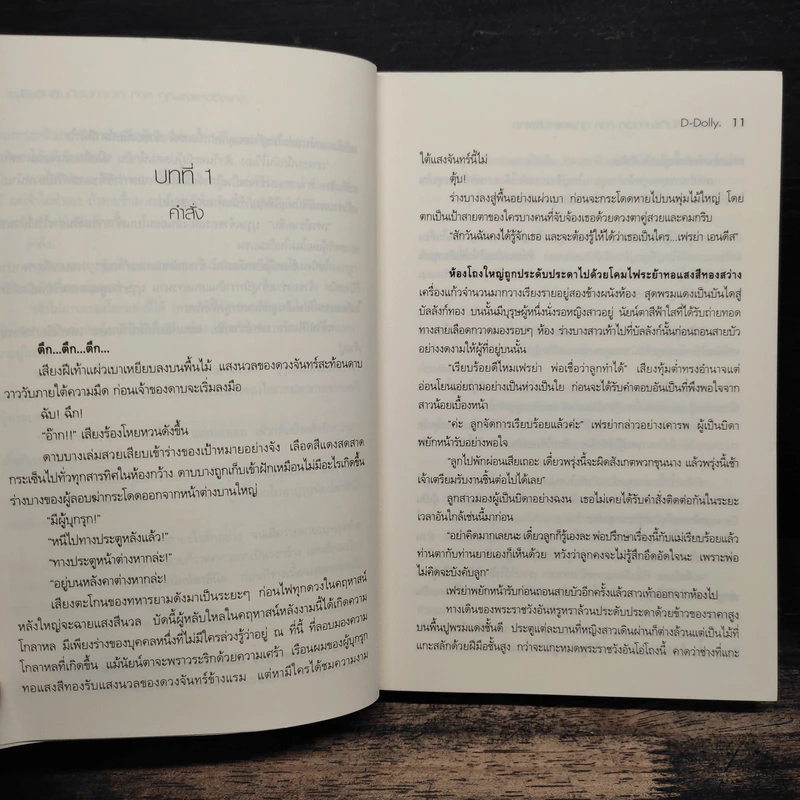 บทที่ 1
คำสั่ง
ตึก...ตึก...ตึก...
เสียงฝีเท้าแผ่วเบาเหยียบลงบนพื้นไม้ แสงนวลของดวงจันทร์สะท้อนดาบ
วาววับภายใต้ความมืด ก่อนเจ้าของดาบจะเริ่มลงมือ
ฉับ! ฉึก!
“อ๊าก!!” เสียงร้องโหยหวนดังขึ้น
ดาบบางเล่มสวยเสียบเข้าร่างของเป้าหมายอย่างจัง เลือดสีแดงสดสาด
กระเซ็นไปทั่วทุกสารทิศในห้องกว้าง ดาบบางถูกเก็บเข้าฝักเหมือนไม่มีอะไรเกิดขึ้น
ร่างบางของผู้ลอบฆ่ากระโดดออกจากหน้าต่างบานใหญ่
“มีผู้บุกรุก!”
“หนีไปทางประตูหลังแล้ว!”
“ทางประตูหน้าต่างหากล่ะ!”
“อยู่บนหลังคาต่างหากล่ะ!”
เสียงตะโกนของทหารยามดังมาเป็นระยะๆ ก่อนไฟทุกดวงในคฤหาสน์
หลังใหญ่จะฉายแสงสีนวล บัดนี้ผู้หลับใหลในคฤหาสน์หลังงามนี้ได้เกิดความ
โกลาหล มีเพียงร่างของบุคคลหนึ่งที่ไม่มีใครล่วงรู้ว่าอยู่ ณ ที่นี้ ที่ลอบมองความ
โกลาหลที่เกิดขึ้น แม้นัยน์ตาจะพราวระริกด้วยความเศร้า เรือนผมของผู้บุกรุก
ทอแสงสีทองรับแสงนวลของดวงจันทร์ข้างแรม แต่หามีใครได้ชมความงาม
D-Dolly. 11
ใต้แสงจันทร์นี้ไม่
ตุ้บ!
ร่างบางลงสู่พื้นอย่างแผ่วเบา ก่อนจะกระโดดหายไปบนพุ่มไม้ใหญ่ โดย
ตกเป็นเป้าสายตาของใครบางคนที่จับจ้องเธอด้วยดวงตาคู่สวยและคมกริบ
“สักวันฉันคงได้รู้จักเธอ และจะต้องรู้ให้ได้ว่าเธอเป็นใคร...เฟรย่า เอนดีส”
ห้องโถงใหญ่ถูกประดับประดาไปด้วยโคมไฟระย้าทอแสงสีทองสว่าง
เครื่องแก้วจำนวนมากวางเรียงรายอยู่สองข้างผนังห้อง สุดพรมแดงเป็นบันไดสู่
บัลลังก์ทอง บนนั้นมีบุรุษผู้หนึ่งนั่งรอหญิงสาวอยู่ นัยน์ตาสีฟ้าใสที่ได้รับถ่ายทอด
ทางสายเลือดกวาดมองรอบๆ ห้อง ร่างบางสาวเท้าไปที่บัลลังก์นั้นก่อนถอนสายบัว
อย่างงดงามให้ผู้ที่อยู่บนนั้น
“เรียบร้อยดีไหมเฟรย่า พ่อเชื่อว่าลูกทำได้” เสียงทุ้มต่ำทรงอำนาจแต่
อ่อนโยนเอ่ยถามอย่างเป็นห่วงเป็นใย ก่อนจะได้รับคำตอบอันเป็นที่พึงพอใจจาก
สาวน้อยเบื้องหน้า
“ค่ะ ลูกจัดการเรียบร้อยแล้วค่ะ” เฟรย่ากล่าวอย่างเคารพ ผู้เป็นบิดา
พยักหน้ารับอย่างพอใจ
“ลูกไปพักผ่อนเสียเถอะ เดี๋ยวพรุ่งนี้จะผิดสังเกตพวกขุนนาง แล้วพรุ่งนี้เช้า
เจ้าเตรียมรับงานชิ้นต่อไปได้เลย”
ลูกสาวมองผู้เป็นบิดาอย่างฉงน เธอไม่เคยได้รับคำสั่งติดต่อกันในระยะ
เวลาอันใกล้เช่นนี้มาก่อน
“อย่าคิดมากเลยนะ เดี๋ยวลูกก็รู้เองละ พ่อปรึกษาเรื่องนี้กับแม่เรียบร้อยแล้ว
ท่านตากับท่านยายเองก็เห็นด้วย หวังว่าลูกคงจะไม่รู้สึกอึดอัดใจนะ เพราะพ่อ
ไม่คิดจะบังคับลูก”
เฟรย่าพยักหน้ารับก่อนถอนสายบัวอีกครั้งแล้วสาวเท้าออกจากห้องไป
ทางเดินของพระราชวังอันหรูหราล้วนประดับประดาด้วยข้าวของราคาสูง
บนพื้นปูพรมแดงชั้นดี ประตูแต่ละบานที่หญิงสาวเดินผ่านก็ต่างล้วนแต่เป็นไม้ที่
แกะสลักด้วยฝีมือชั้นสูง กว่าจะแกะหมดพระราชวังอันโอ่โถงนี้ คาดว่าช่างที่แกะ